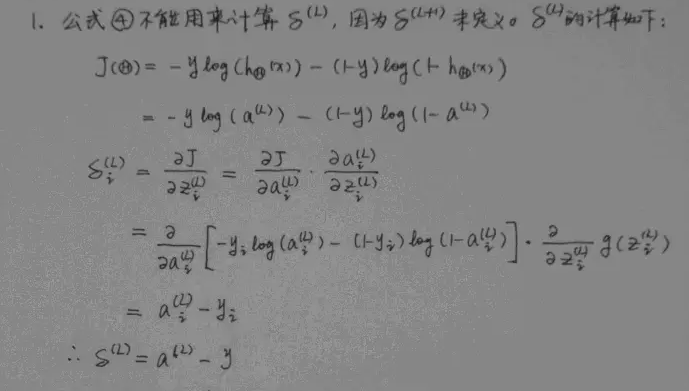 1. 公式④不能用来计算 δ^(L), 因为 δ^(L+1) 未定义。δ^(L)的计算如下:
J(Θ) = -y log(h_Θ(x)) - (1-y) log(1-h_Θ(x))
= -y log(a^(L)) - (1-y) log(1-a^(L))
δ_i^(L) = ∂J/∂z_i^(L) = ∂J/∂a_i^(L) · ∂a_i^(L)/∂z_i^(L)
= ∂/∂a_i^(L) [-y_i log(a_i^(L)) - (1-y_i) log(1-a_i^(L))] · ∂/∂z_i^(L) g(z_i^(L))
= a_i^(L) - y_i
∴ δ^(L) = a^(L) - y